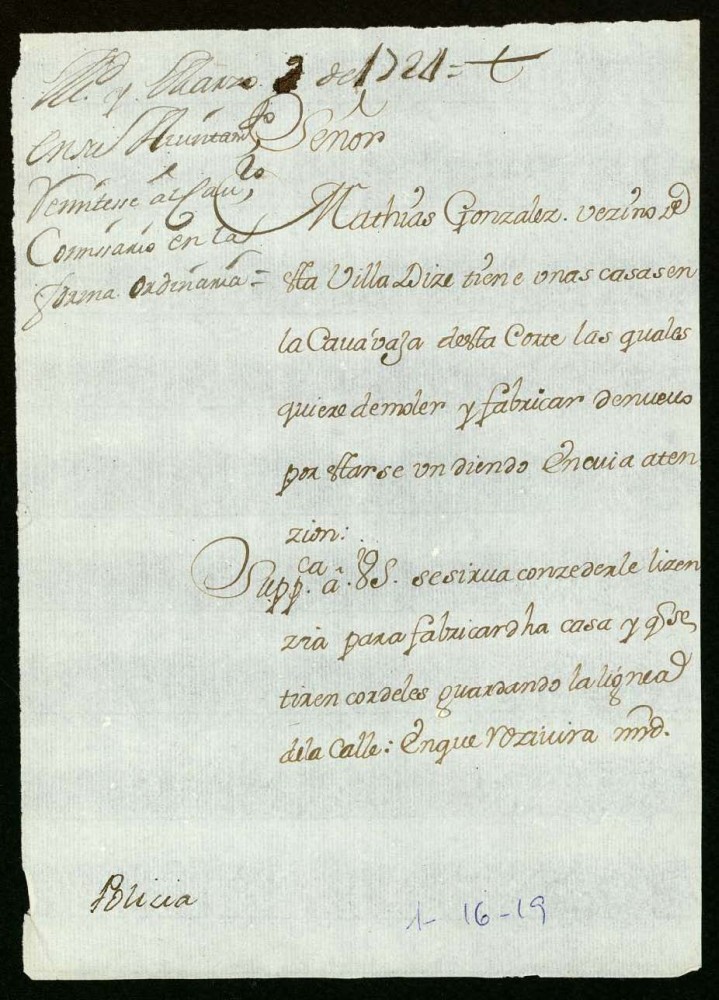 M.d y Marzo 2 de 1721 =
en su Aiuntam.to
Remitese al Cau.ro
Comisario en la
forma ordinaria =
Señor
Mathias Gonzalez. vezino de
esta Villa Dize tiene vnas casas en
la Caua vaja desta Corte las quales
quiere demoler y fabricar denueuo
por estarse vndiendo en cuia aten
zion:
Supp.ca a. VS. se sirua conzederle lizen
zia para fabricar dha casa y q se
tiren cordeles guardando la lignea
dela Calle: en que Rezivira mrd.
Policia
1-16-19